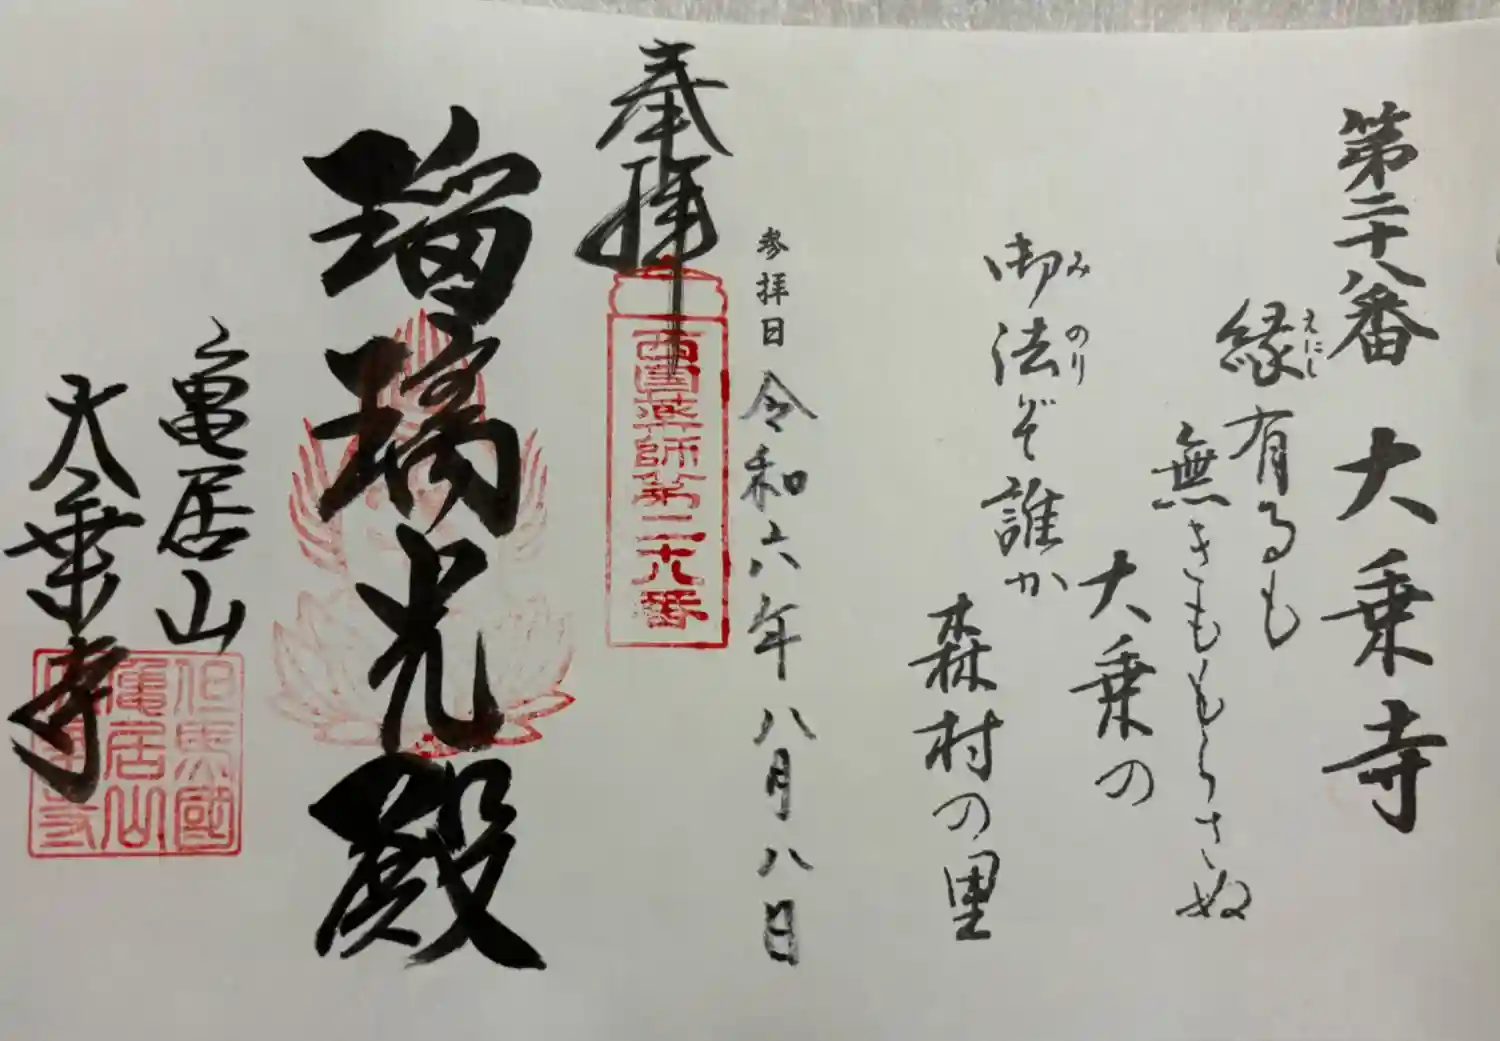 第二十八番 大乗寺
縁有るも
えにし
無きももらさぬ
大乗の
御法ぞ誰か
み のり
森村の里
参拝日 令和六年八月八日
奉拝
西国薬師第二十八番
瑠璃光殿
亀居山
大乗寺
但馬國
亀居山
大乗寺